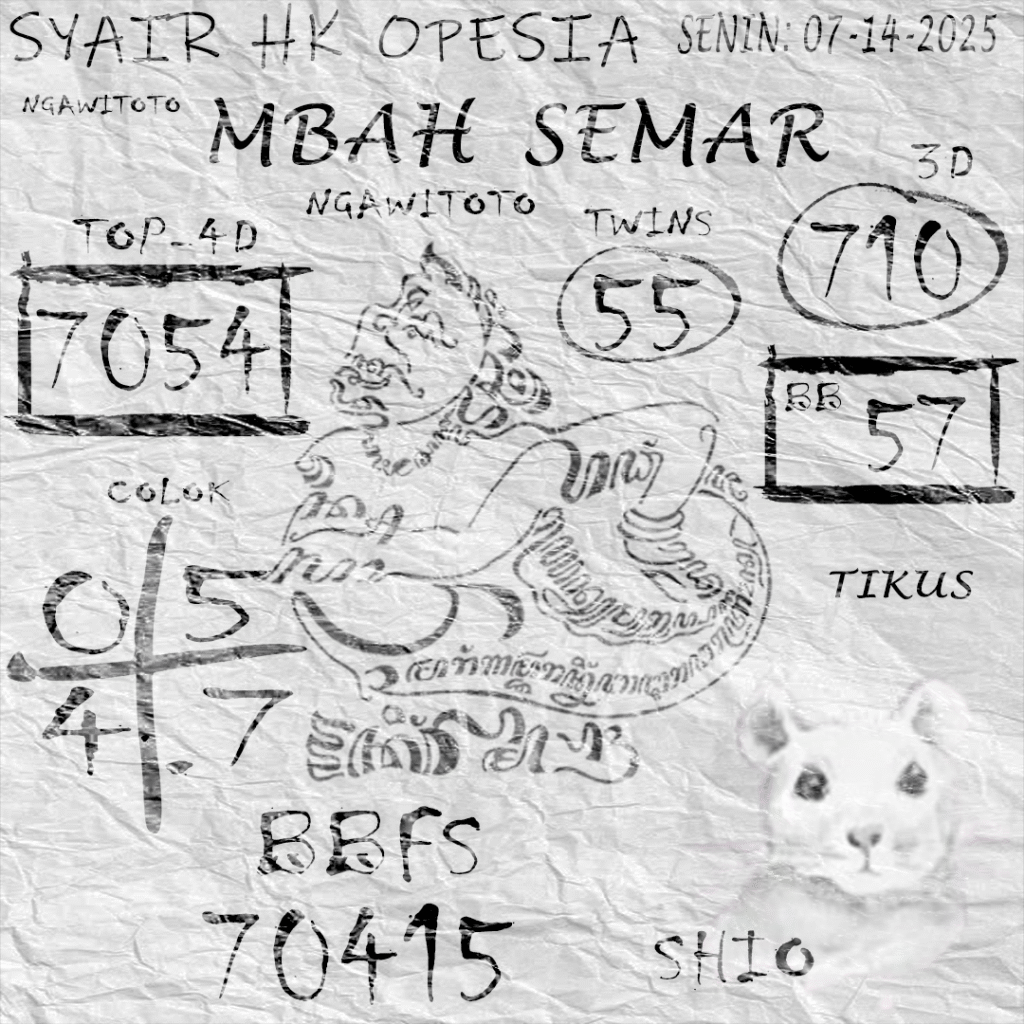 SYAIR HK OPESIA
SENIN: 07-14-2025
NGAWITOTO
MBAH SEMAR
3D
710
NGAWITOTO
TWINS
55
TOP_4D
7054
BB 57
COLOK
0 5
4 7
TIKUS
BBFS
70415
SHIO